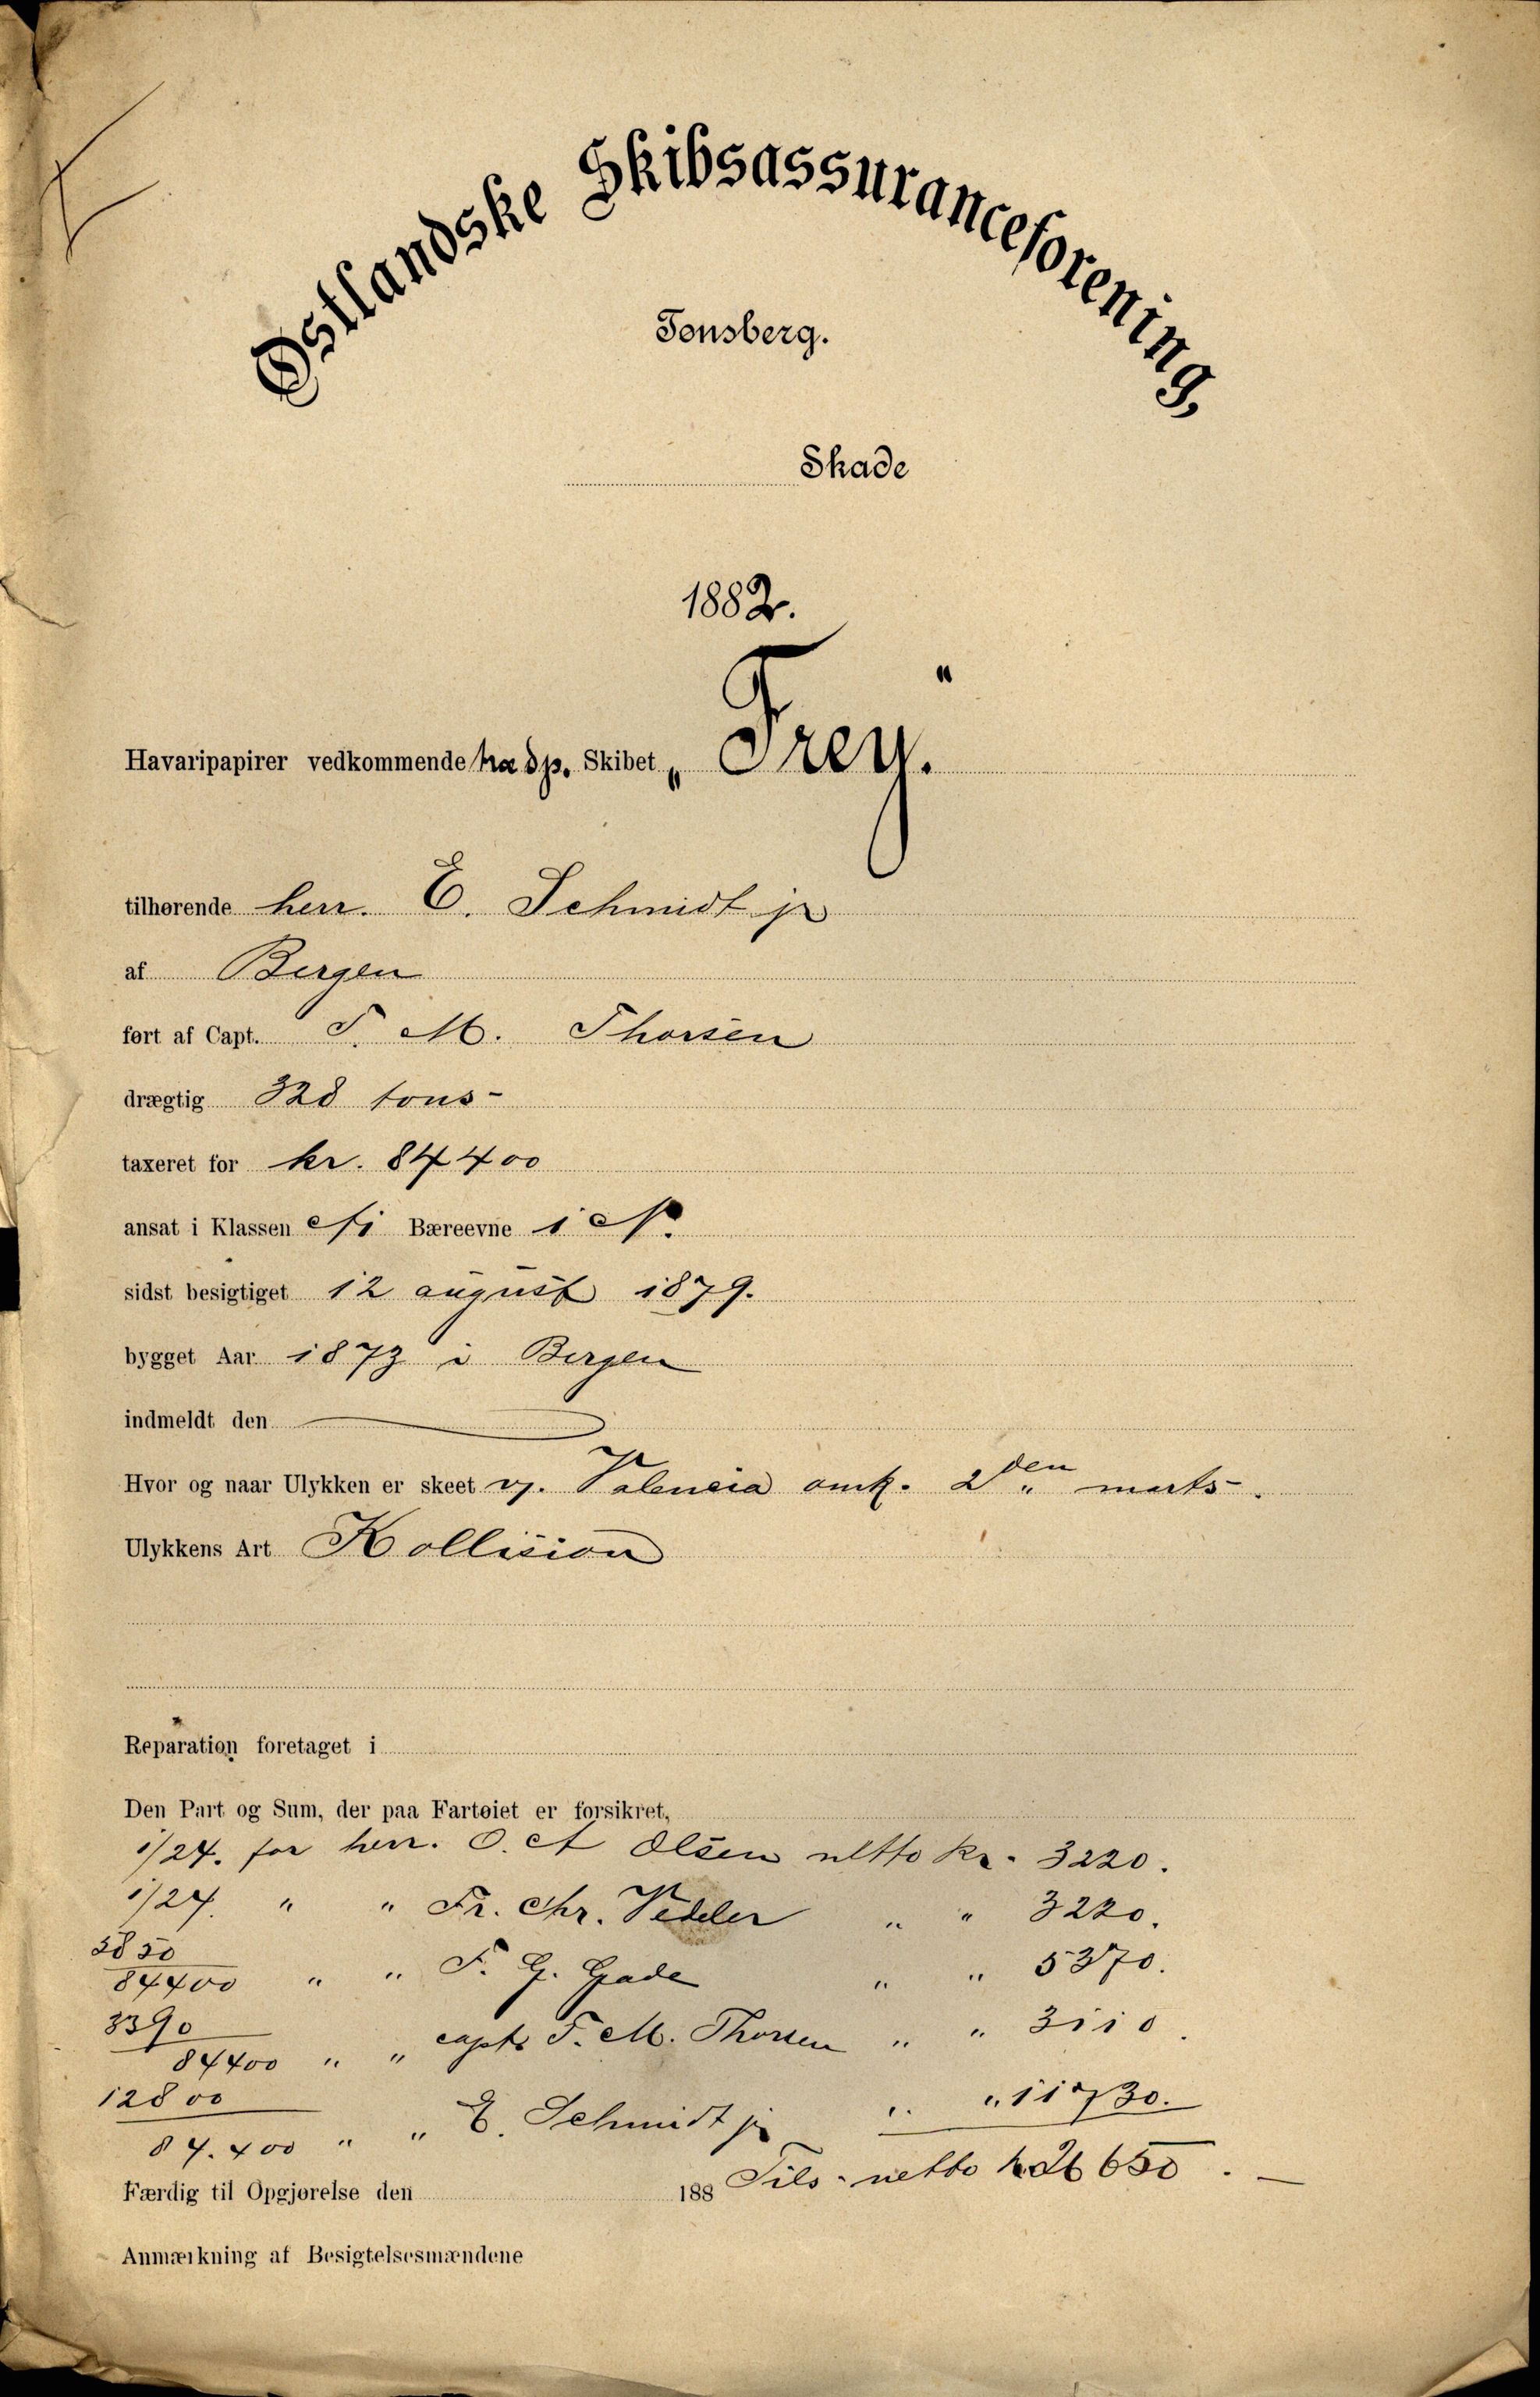 Østlandske Skibsassuranceforening,
Tønsberg.
Skade
1882.
Havaripapirer vedkommende Skibet „Frey."
tilhørende herr. E. Schmidt jr
af Bergen
ført af Capt. T. M. Thorsen
drægtig 328 tons-
taxeret for kr. 84400
ansat i Klassen A1 Bæreevne
sidst besigtiget 12 august 1879.
bygget Aar 1873 i Bergen
indmeldt den
Hvor og naar Ulykken er skeet v. Valencia omk. 2den marts.
Ulykkens Art Kollision
Reparation foretaget i
Den Part og Sum, der paa Fartøiet er forsikret,
1/24. for herr. O. A Olsen netto kr. 3220.
1/24. " " Fr. Chr. Vedeler " " 3220.
5850/84400 " " F. G. Gade " " 5370.
3390/84400 " " capt. T. M. Thorsen " " 3110.
12800/84.400 " " E. Schmidt jr " " 11730.
Tils. netto kr. 26650.
Færdig til Opgjørelse den 188
Anmærkning af Besigtelsesmændene